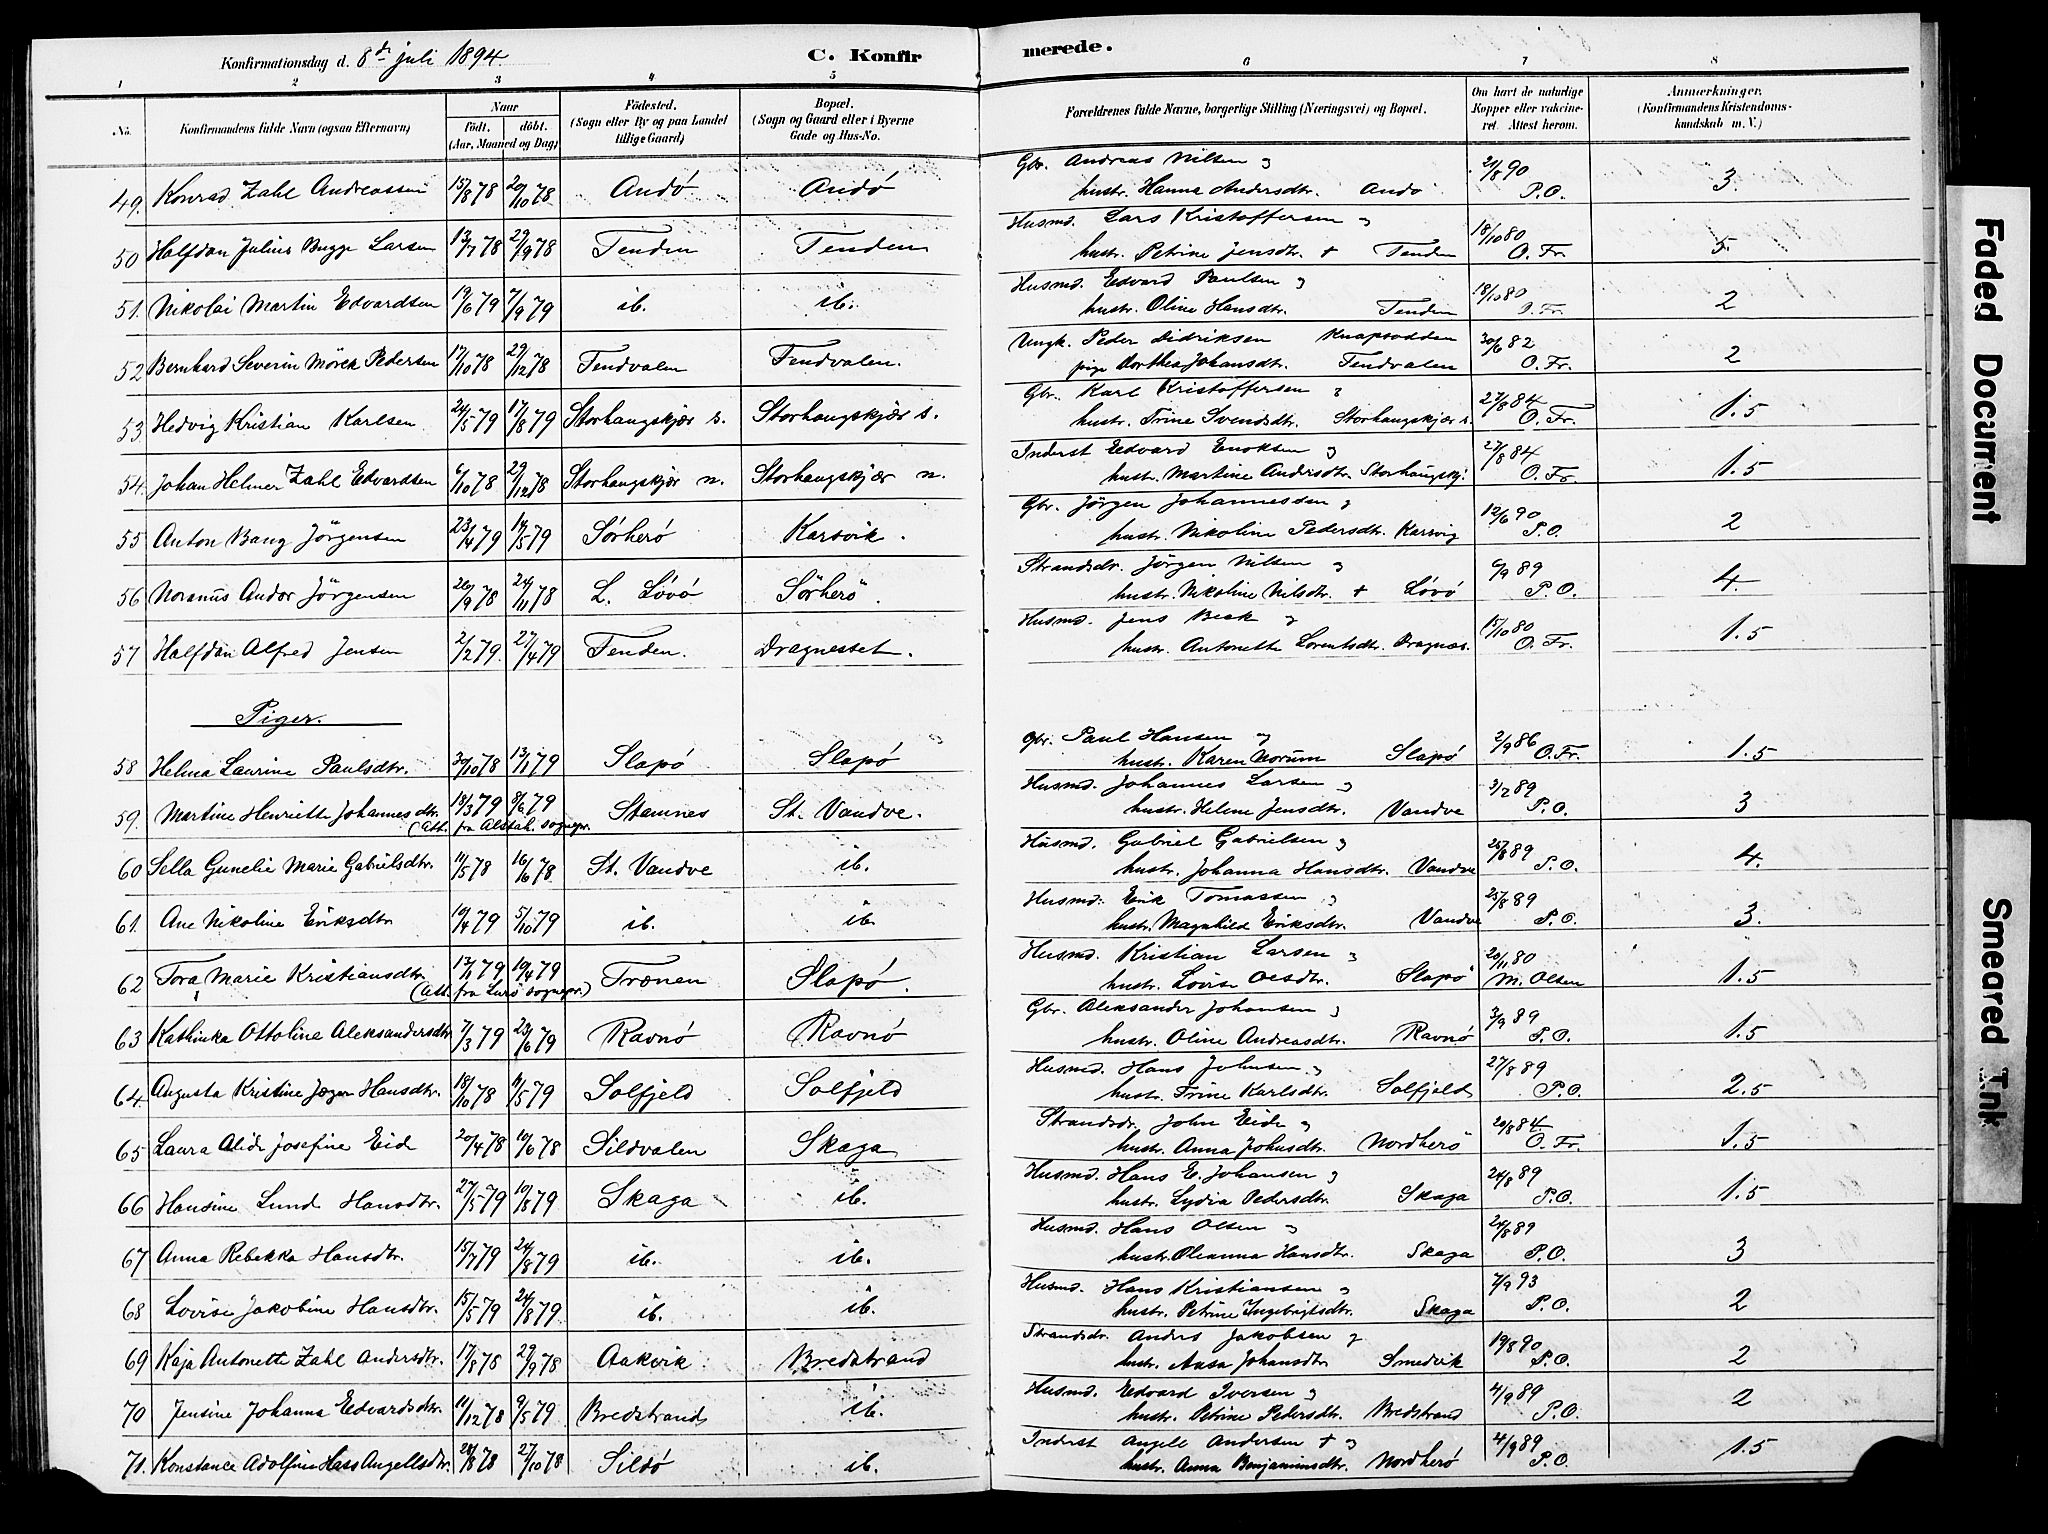 Konfirmationsdag d. 8de juli 1894.
C. Konfirmerede.
1 2 3 4 5 6 7 8
No. Konfirmandens fulde Navn (ogsaa Efternavn) Naar Födt. döbt. (Aar, Maaned og Dag) Födested. (Sogn eller By og paa Landet tillige Gaard) Bopæl. (Sogn og Gaard eller i Byerne Gade og Hus-No. Forældrenes fulde Navne, borgerlige Stilling (Næringsvei) og Bopæl. Om havt de naturlige Kopper eller vakcineret. Attest herom. Anmærkninger. (Konfirmandens Kristendomskundskab m. V.)
49. Konrad Zahl Andreassen 15/8 78 20/10 78 Andö Andö Gbr. Andreas Nilsen og hustr. Hanna Andersdtr. Andö 21/8 90 P.O. 3.
50 Halfdan Julius Bugge Larsen 13/7 78 29/9 78 Tenden Tenden Husmd. Lars Kristoffersen og hustr. Petrine Jensdtr. + Tenden 18/10 80 O. Fr. 5.
51. Nikolai Martin Edvardsen 19/6 79 7/9 79 ib. ib. Husmd. Edvard Paulsen og hustr. Oline Hansdtr. Tenden 18/10 80 O. Fr. 2
52 Bernhard Severin Mörck Pedersen 17/10 78 29/12 78 Tendvalen Tendvalen. Ungk. Peder Didriksen Knapsodden pige Dorthea Johansdtr. Tendvalen 30/6 82 O. Fr. 2
53 Hedvig Kristian Karlsen 24/5 79 17/8 79 Storhaugskjær s. Storhaugskjær s. Gbr. Karl Kristoffersen og hustr. Trine Svendsdtr. Storhaugskjær s. 27/8 84 O. Fr. 1.5
54. Johan Helmer Zahl Edvardsen 6/10 78 29/12 78 Storhaugskjær n. Storhaugskjær n. Inderst Edvard Enoksen og hustr. Martine Andersdtr. Storhaugskj. 27/8 84 O. Fr. 1.5
55 Anton Bang Jörgensen 23/4 79 14/5 79 Sörherö Karsvik. Gbr. Jörgen Johannessen og hustr. Nikoline Pedersdtr. Karsvig 12/6 90 P.O. 2
56 Noranus Andor Jörgensen 20/9 78 24/11 78 L. Lövö Sörherö. Strandsdr. Jörgen Nilsen og hustr. Nikoline Nilsdtr. + Lövö 6/9 89 P.O. 4.
57 Halfdan Alfred Jensen 2/2 79. 27/4 79 Tenden. Dragnesset. Husmd. Jens Beck og hustr. Antonette Lorentsdtr. Dragnæs. 15/10 80 O. Fr. 1.5
Piger.
58 Helma Laurine Paulsdtr. 30/10 78 13/1 79 Slapö Slapö Gbr. Paul Hansen og hustr. Karen Norum Slapö 2/9 86 O.Fr. 1.5
59. Martine Henriette Johannesdtr. 18/3 79 8/6 79 Stamnes St. Vandve. Husmd. Johannes Larsen og hustr. Helene Jensdtr. Vandve 3/2 89 P.O. 3
(Att. fra Alstah. sognepr.
60 Sella Gunelie Marie Gabrielsdtr. 11/5 78 16/6 78 St. Vandve ib. Husmd. Gabriel Gabrielsen og hustr. Johanna Hansdtr. Vandve 25/8 89 P.O. 4.
61. Ane Nikoline Eriksdtr. 10/4 79 5/10 79 ib. ib. Husmd. Erik Tomassen og hustr. Magnhild Eriksdtr. Vandve 25/8 89 P.O. 3.
62 Tora Marie Kristiansdtr. 13/1 79 10/4 79 Trænen Slapö. Husmd. Kristian Larsen og hustr. Lovise Olsdtr. Slapö 20/11 80 M. Olsen 1.5
(Att. fra Lurö sognepr.)
63 Kathinka Ottoline Aleksandersdtr. 7/3 79 23/6 79 Ravnö Ravnö Gbr. Aleksander Johansen og hustr. Oline Andreasdtr. Ravnö 3/9 89 P.O. 1.5
64. Augusta Kristine Jæger Hansdtr. 18/10 78 11/5 79 Solfjeld Solfjeld Husmd. Hans Johnsen og hustr. Trine Karlsdtr. Solfjeld 27/8 89 P.O. 2.5
65 Laura Alide Josefine Eid 20/4 78 10/6 78 Sildvalen Skaga Strandsdr. John Eide og hustr. Anna Johnsdtr. Nordherö 20/8 84. O. Fr. 1.5
66 Hansine Lund Hansdtr. 27/5 79 10/8 79 Skaga ib. Husmd. Hans E. Johansen og hustr. Lydia Pedersdtr. Skaga 24/8 89 P.O. 1.5
67 Anna Rebekka Hansdtr. 15/7 79 24/8 79 ib. ib. Husmd. Hans Olsen og hustr. Oleanna Hansdtr. Skaga 24/8 89 P.O. 3
68 Lovise Jakobine Hansdtr. 15/5 79 24/8 79 ib. ib. Husmd. Hans Kristiansen og hustr. Petrine Ingebrigtsdtr. Skaga 7/9 93 P.O. 2
69 Kaja Antonette Zahl Andersdtr. 17/8 78 29/9 78 Aakvik Bredstrand Strandsdr. Anders Jakobsen og hustr. Aasa Johansdtr. Smedvik 19/8 90 P.O. 2
70 Jensine Johanna Edvardsdtr. 11/12 78 9/5 79 Bredstrand ib. Husmd. Edvard Iversen og hustr. Petrine Pedersdtr. Bredstrand 4/9 89 P.O. 2
71. Konstance Adolfine Hass Angellsdtr. 28/8 78 27/10 78 Sildö ib. Inderst Angell Andersen + og hustr. Anna Benjaminsdtr. Nordherö 4/9 89 P.O. 1.5
Faded Document
Smeared Ink